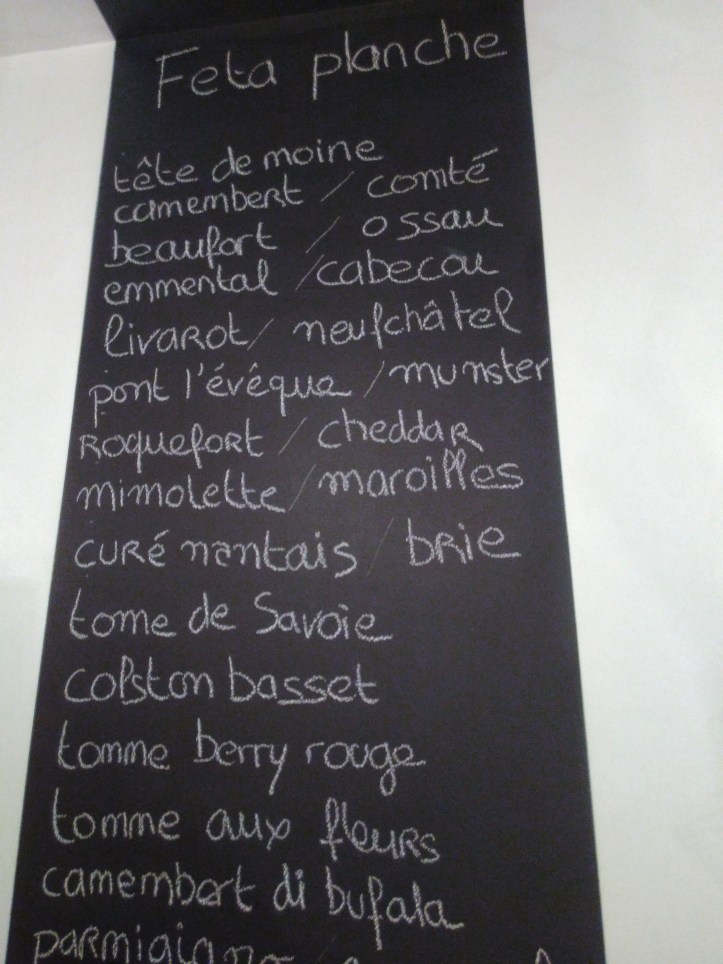 Feta planche
tête de moine
camembert / comté
beaufort / ossau
emmental / cabecou
livarot / neufchâtel
pont l'évêque / munster
Roquefort / cheddar
mimolette / maroilles
curé nantais / brie
tome de Savoie
colston basset
tomme berry rouge
tomme aux fleurs
camembert di bufala
parmigiano /